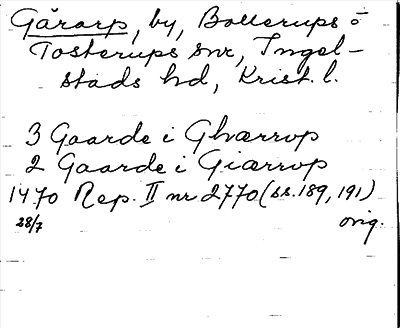 Gårarp, by, Bollerups o
Tosterups snr, Ingel-
stads hd, Krist. l.
3 Gaarde i Ghærrop
2 Gaarde i Giærrop
1470 Rep. II nr 2770 (ss. 189, 191)
28/7 orig.